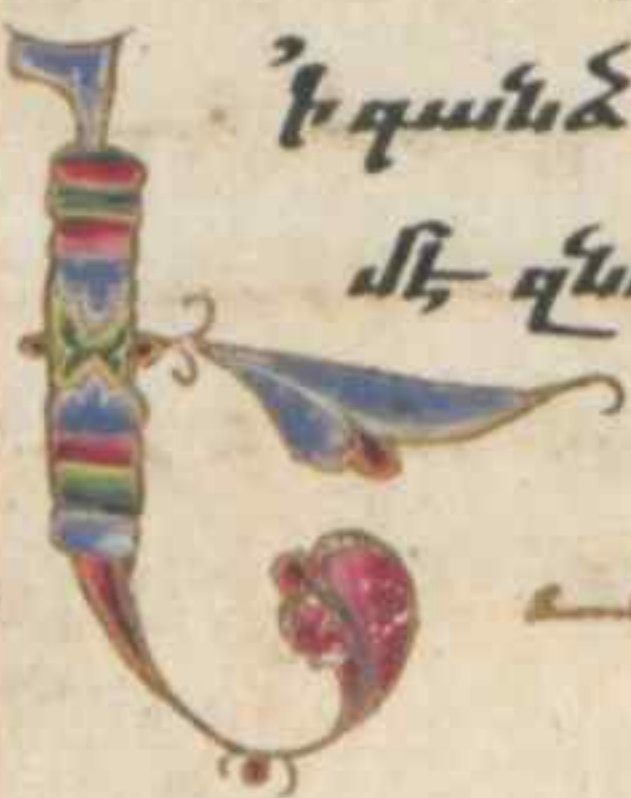 ՚ի գանձ
մէ զն